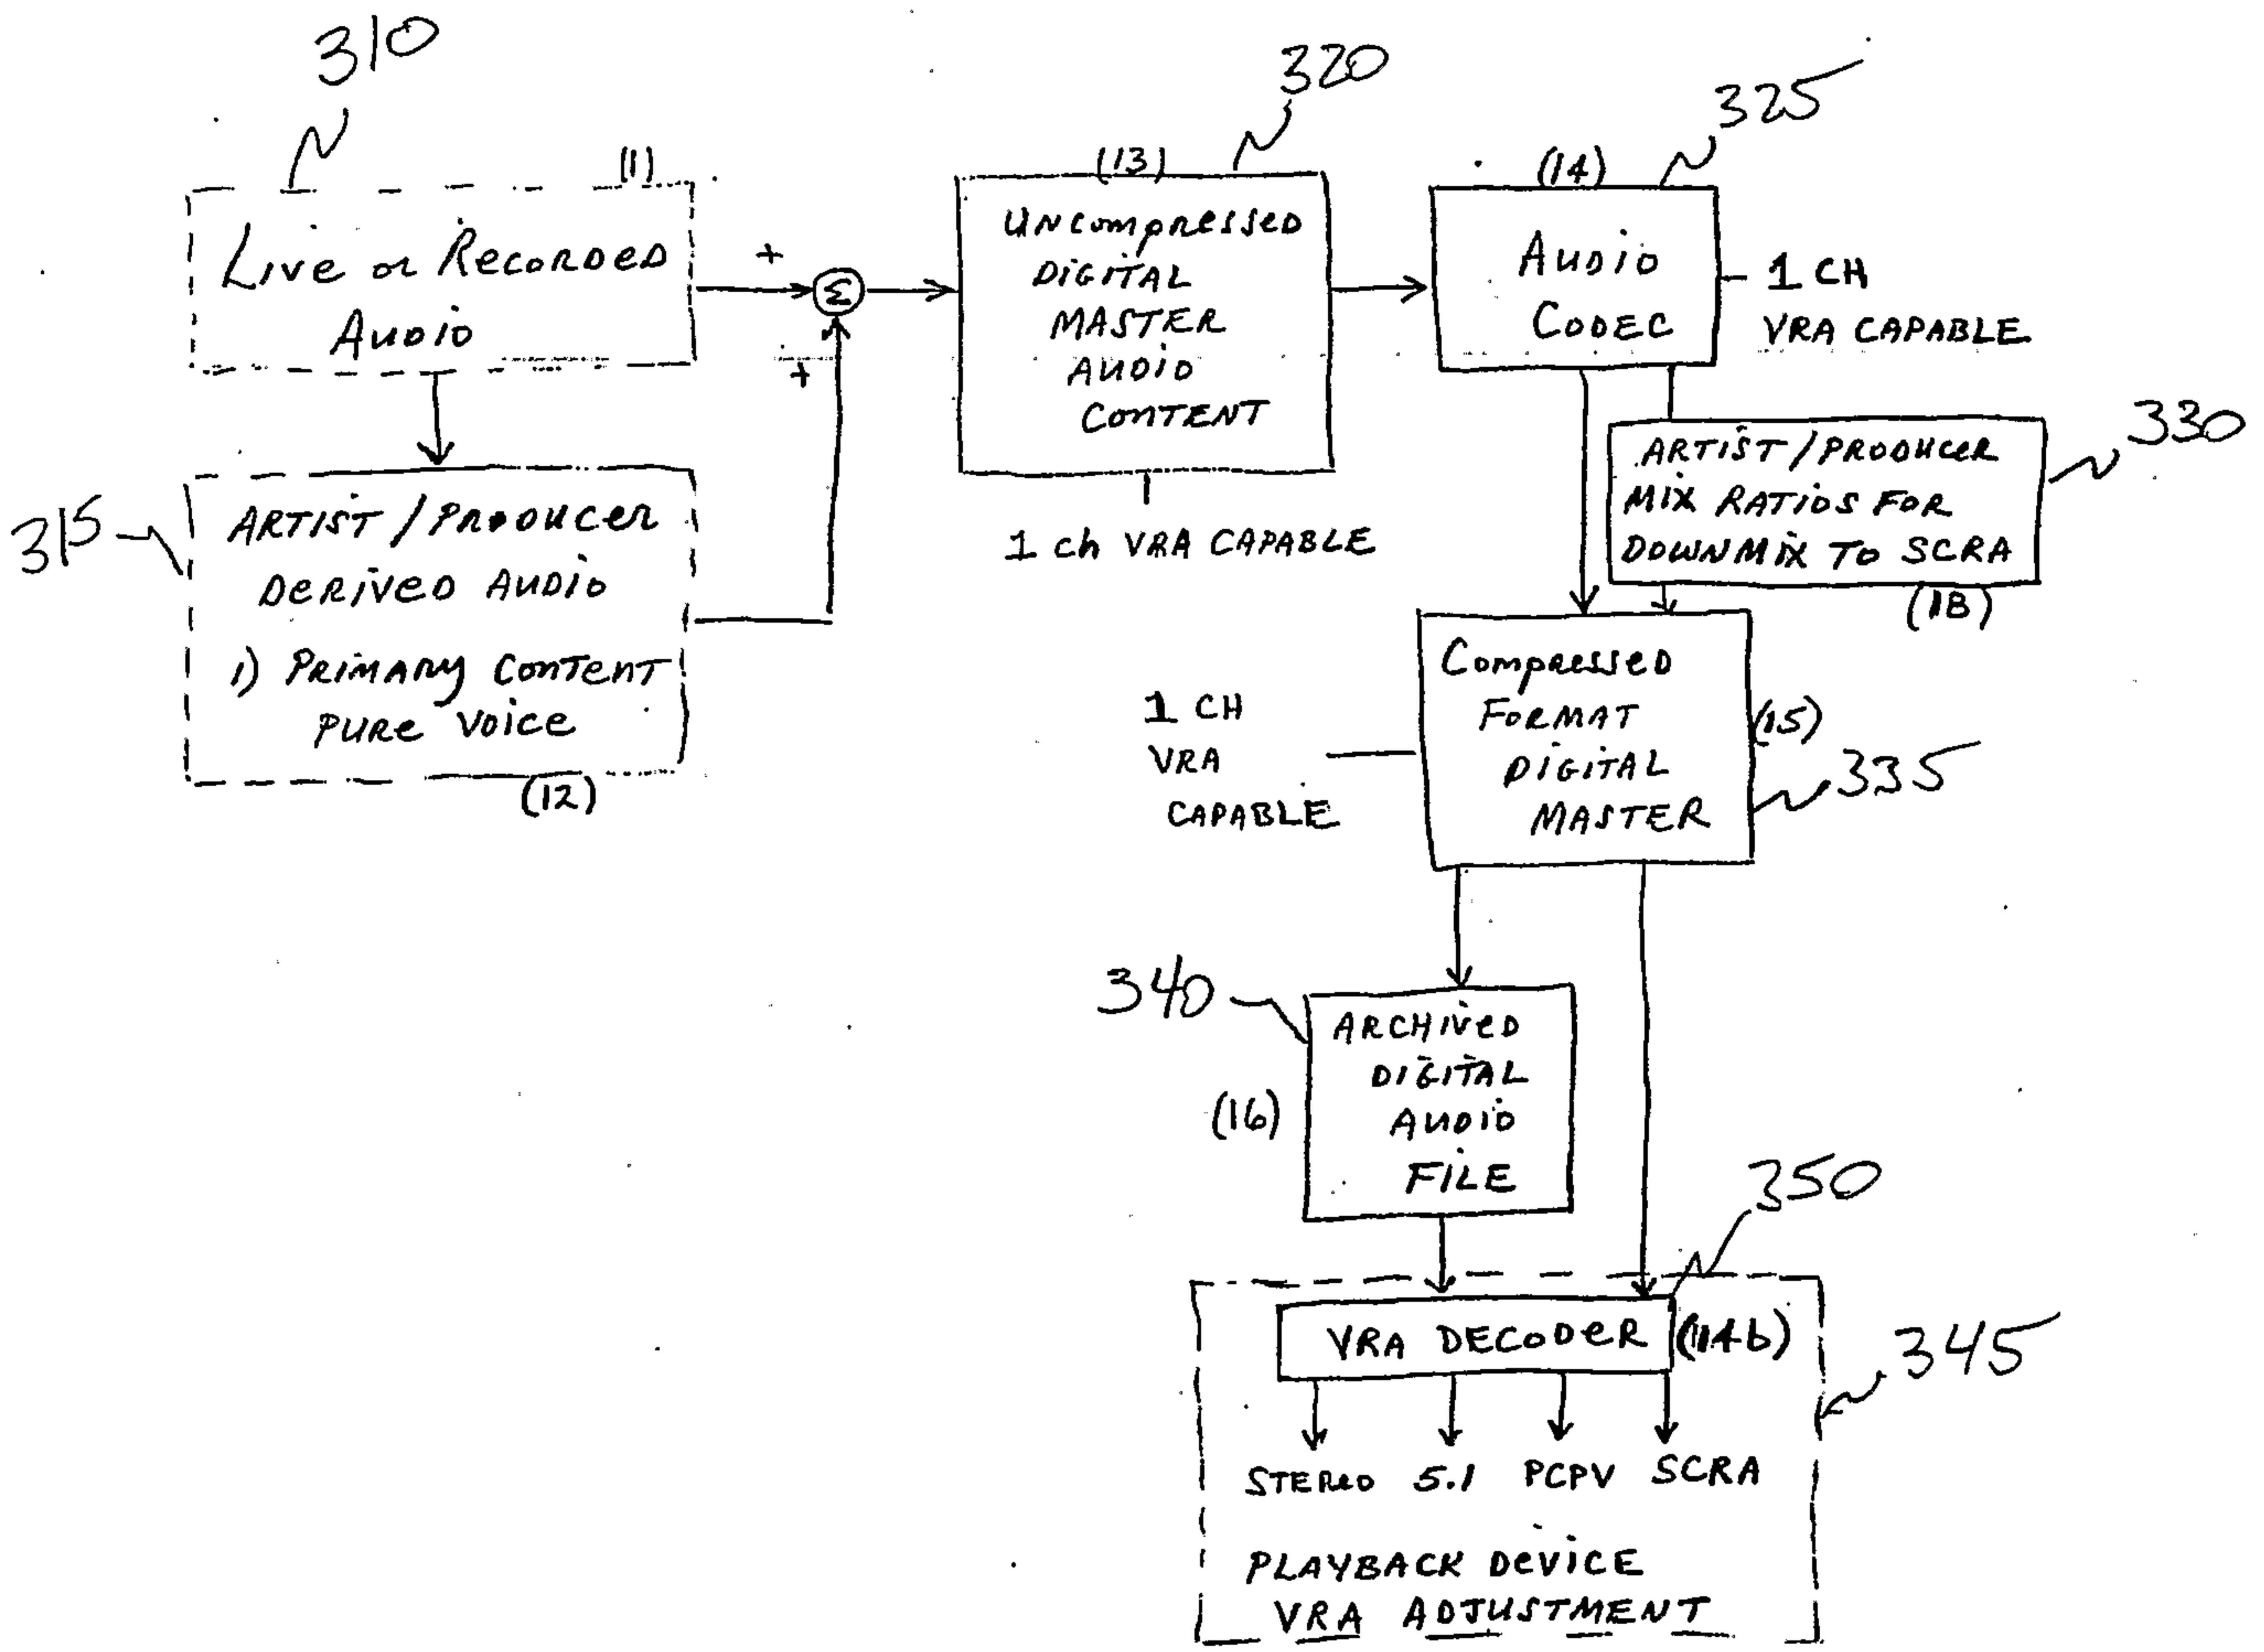 310
(1)
Live or Recorded
Audio
+
Σ
+
315
ARTIST / PRODUCER
DERIVED AUDIO
1) PRIMARY CONTENT
PURE VOICE
(12)
320
(13)
UNCOMPRESSED
DIGITAL
MASTER
AUDIO
CONTENT
1 ch VRA CAPABLE
325
(14)
AUDIO
CODEC
1 CH
VRA CAPABLE
330
ARTIST / PRODUCER
MIX RATIOS FOR
DOWNMIX TO SCRA
(18)
Compressed
FORMAT
DIGITAL
MASTER
(15)
335
1 CH
VRA
CAPABLE
340
ARCHIVED
DIGITAL
AUDIO
FILE
(16)
350
VRA DECODER (14b)
345
STEREO 5.1 PCPV SCRA
PLAYBACK DEVICE
VRA ADJUSTMENT